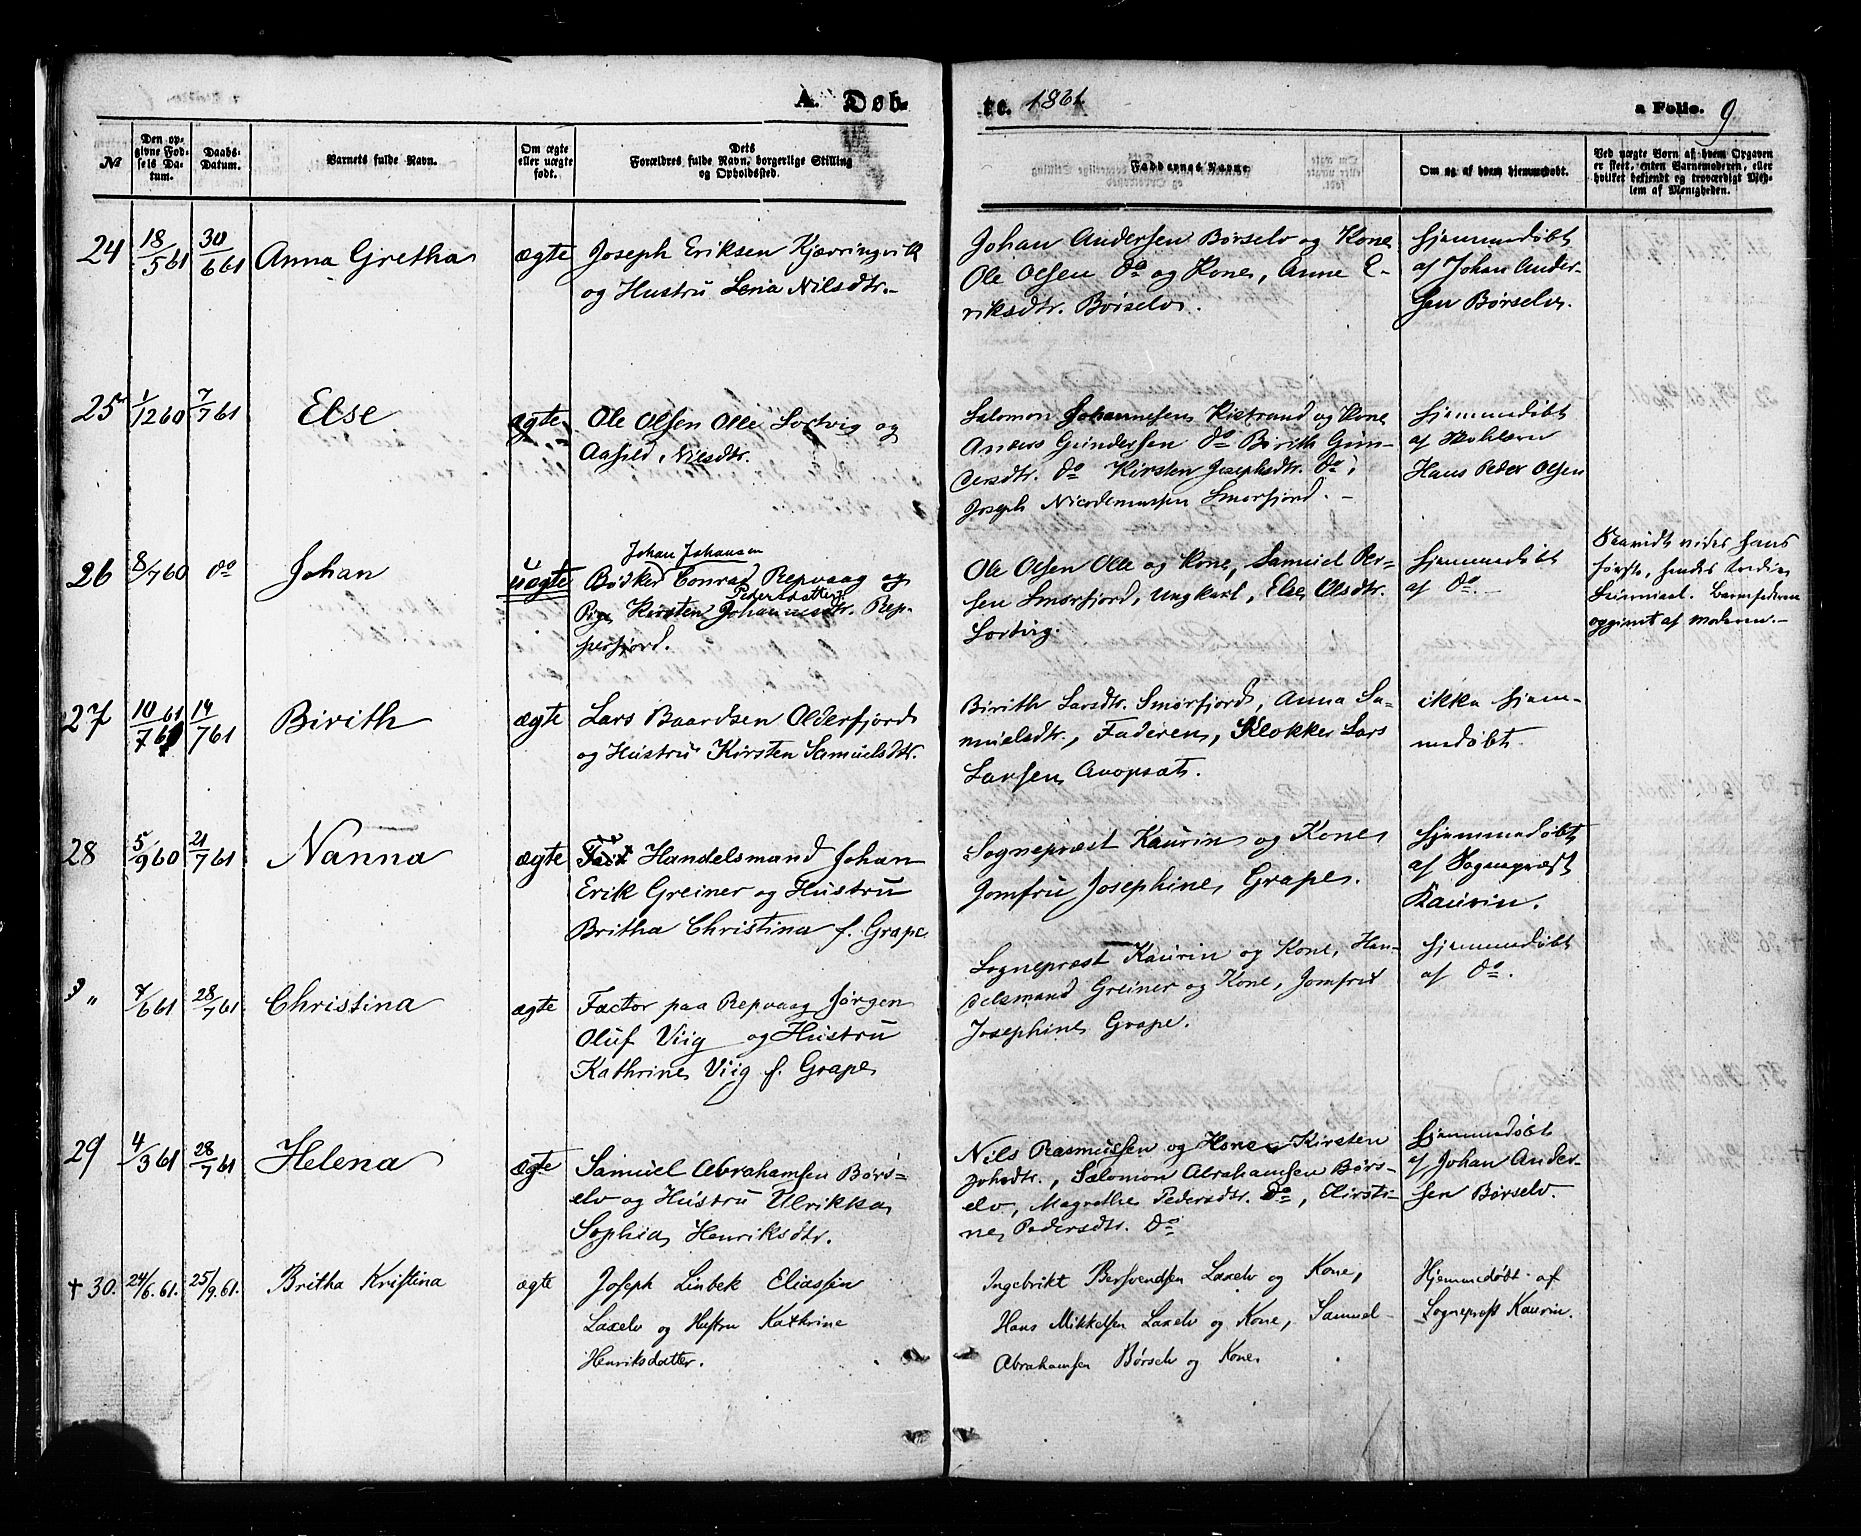 A. Døb-
te. 1861
a Folio. 9
№
Den op-
givne Fød-
sels Da-
tum.
Daabs-
Datum.
Barnets fulde Navn.
Om ægte
eller uægte
født.
Dets
Forældres fulde Navn, borgerlige Stilling
og Opholdssted.
Faddernes Navne
Om og af hvem hjemmedøbt.
Ved uægte Børn af hvem Opgaven
er skeet, enten Barnemoderen, eller
hvilket bekjendt og troværdigt Med-
lem af Menigheden.
24 18/5 61 30/6 61 Anna Gretha ægte
Joseph Eriksen Kjærringvik
og Hustru Lena Nilsdtr.
Johan Andersen Børselv og Kone
Ole Olsen do og Kone, Anne E-
riksdtr. Børselv.
hjemmedøbt
af Johan Ander-
sen Børselv.
25 1/12 60 7/7 61 Else ægte
Ole Olsen Olle Lortvig og
Nilsdtr.
Salomon Johannesen Kistrand og Kone
Anders Gundersen do Birith Gun-
dersdtr. do Kirsten Josephsdtr. do,
Joseph Nicodemussen Smørfjord.
hjemmedøbt
af
Hans Peder Olsen
26 8/7 60 do Johan uægte
Johan Johansen
Bødker Conrad Repvaag og
Pedersdatter
Pige Kirsten Johannesdtr. Rep-
perfjord.
Ole Olsen Olle og Kone, Samuel Per-
sen Smørfjord, Ungkarl, Else Olsdtr.
Lortvig.
hjemmedøbt
af do.
Saavidt vides hans
første, hendes tredie
Leiermaal. Barnefaderen
opgivet af moderen.
27 10/7 61 14/7 61 Birith ægte
Lars Baardsen Olderfjord
og Hustru Kirsten Samuelsdtr.
Birith Larsdtr. Smørfjord, Anna Sa-
muelsdtr., Faderen, Klokker Lars
Larsen Avopsat.
ikke hjem-
medøbt.
28 5/9 60 21/7 61 Nanna ægte
Handelsmand Johan
Erik Greiner og Hustru
Britha Christina f. Grape
Sognepræst Kaurin og Kone
Jomfru Josephine Grape.
hjemmedøbt
af Sognepræst
Kaurin.
" 7/6 61 28/7 61 Christina ægte
Factor paa Repvaag Jørgen
Oluf Viig og Hustru
Kathrine Viig f. Grape
Sognepræst Kaurin og Kone, Han-
delsmand Greiner og Kone, Jomfru
Josephine Grape.
hjemmedøbt
af do.
29 4/3 61 28/7 61 Helena ægte
Samuel Abrahamsen Børs-
elv og Hustru Ulrikka
Sophia Henriksdtr.
Nils Rasmussen og Kone Kirsten
Johsdtr., Salomon Abrahamsen Børs-
elv, Magrethe Pedersdtr. do, Kirsti-
ne Pedersdtr. do
hjemmedøbt
af Johan Ander-
sen Børselv.
† 30. 24/6. 61. 25/9. 61. Britha Kristina ægte
Joseph Linbek Eliassen
Laxelv og Hustru Kathrine
Henriksdatter.
Ingebrikt Bersvendsen Laxelv og Kone,
Hans Mikkelsen Laxelv og Kone, Samuel
Abrahamsen Børselv og Kone
Hjemmedøbt af
Sogneprest Kaurin.